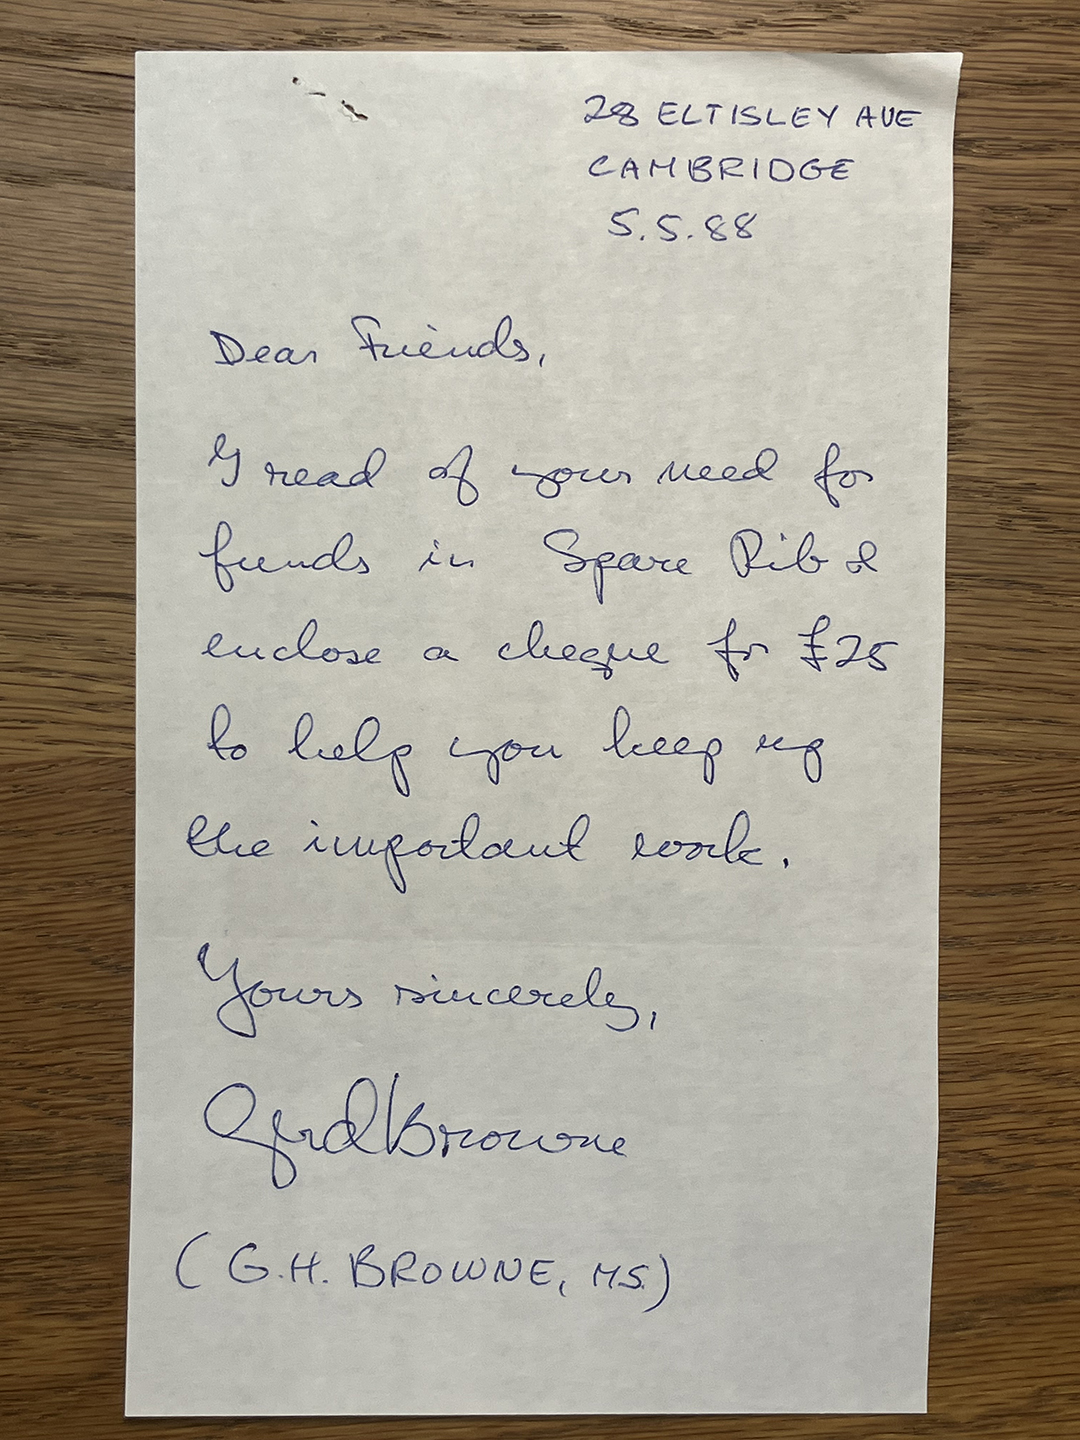 28 ELTISLEY AVE
CAMBRIDGE
5.5.88
Dear Friends,
I read of your need for
funds in Spare Rib &
enclose a cheque for £25
to help you keep up
the important work.
Yours sincerely,
Browne
(G.H. BROWNE, MS)